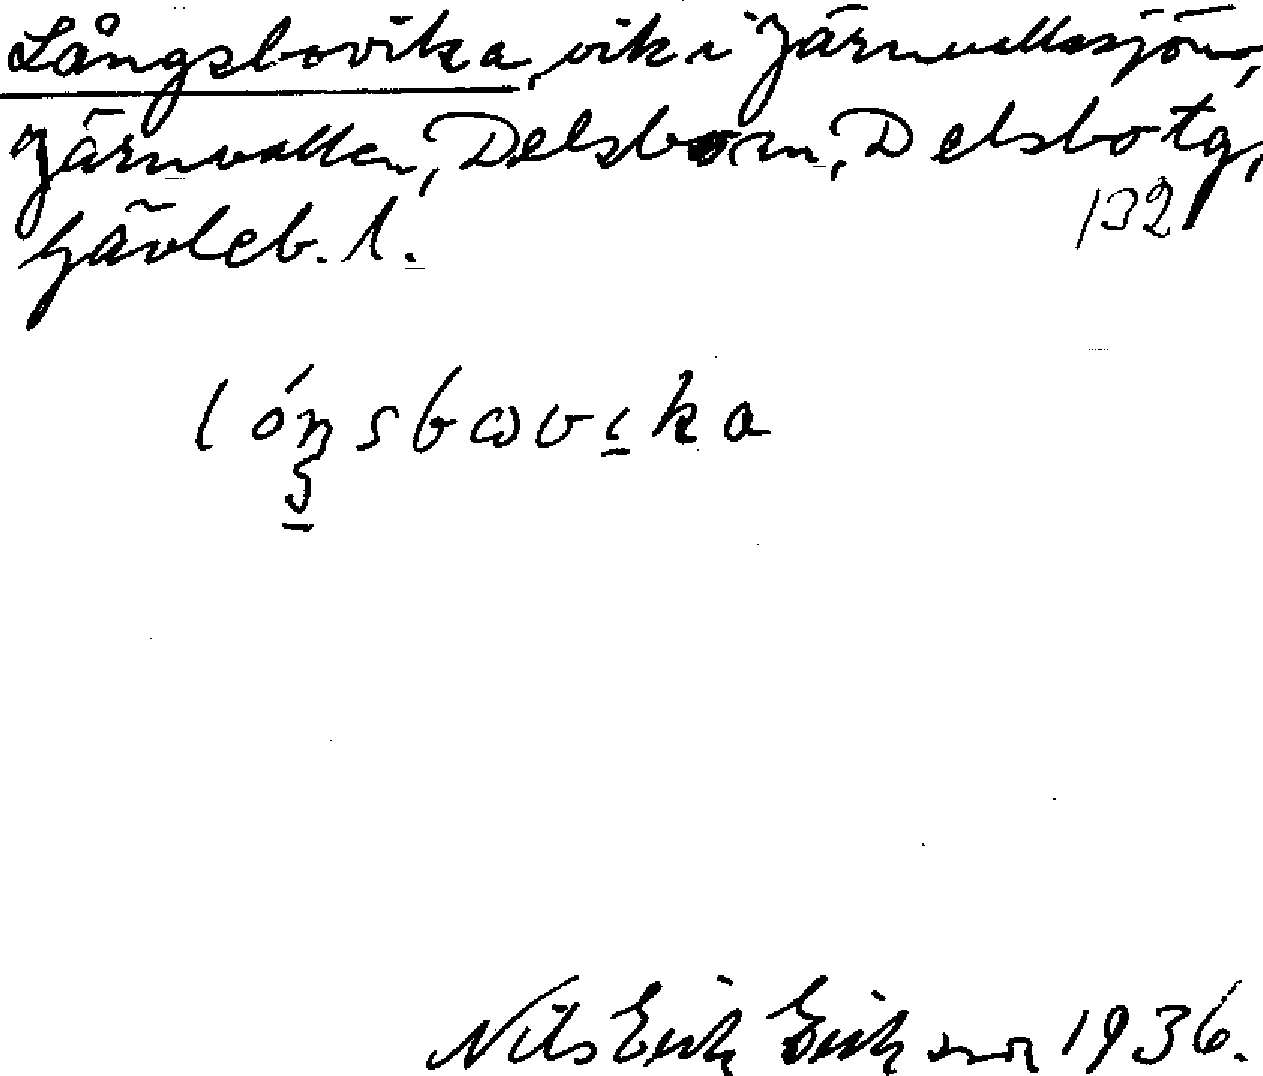 Långsbovika, vik i Järnvallssjön,
Järnvallen, Delsbo sn, Delsbo tg,
Gävleb. l.
132
lóŋsbωvika
Nils Erik Eriksson 1936.